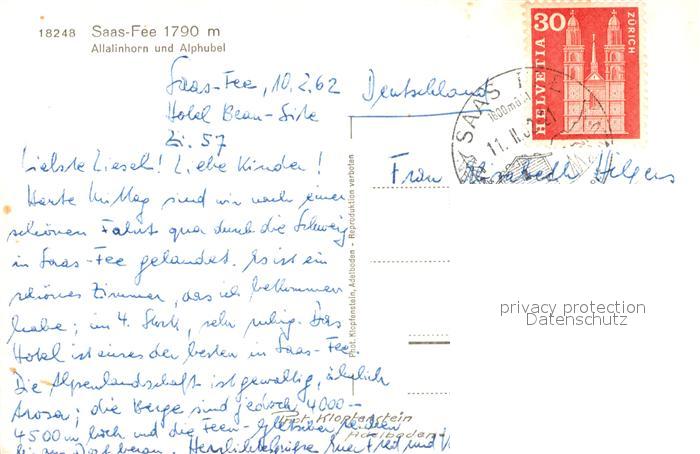 18248 Saas-Fee 1790 m
Allalinhorn und Alphubel
Saas-Fee, 10.2.62
Hotel Beau-Site
Zi. 57
Liebste Liesel! Liebe Kinder!
Heute Mittag sind wir nach einer
schönen Fahrt quer durch die Schweiz
in Saas-Fee gelandet. Es ist ein
schönes Zimmer, das ich bekommen
habe; im 4. Stock, sehr ruhig. Das
Hotel ist eines der besten in Saas-Fee.
Die Alpenlandschaft ist gewaltig, ähnlich
Arosa; die Berge sind jedoch 4000-
4500 m hoch und die Feen-Gletscher reichen
bis ans Dorf heran. Herzlichste Grüsse Euer Fred und V
Phot. Klopfenstein, Adelboden - Reproduktion verboten
Deutschland
Frau Elisabeth Hilgers
30
HELVETIA
ZÜRICH
SAAS
1800m
11.II.62
privacy protection
Datenschutz
Phot. Klopfenstein
Adelboden